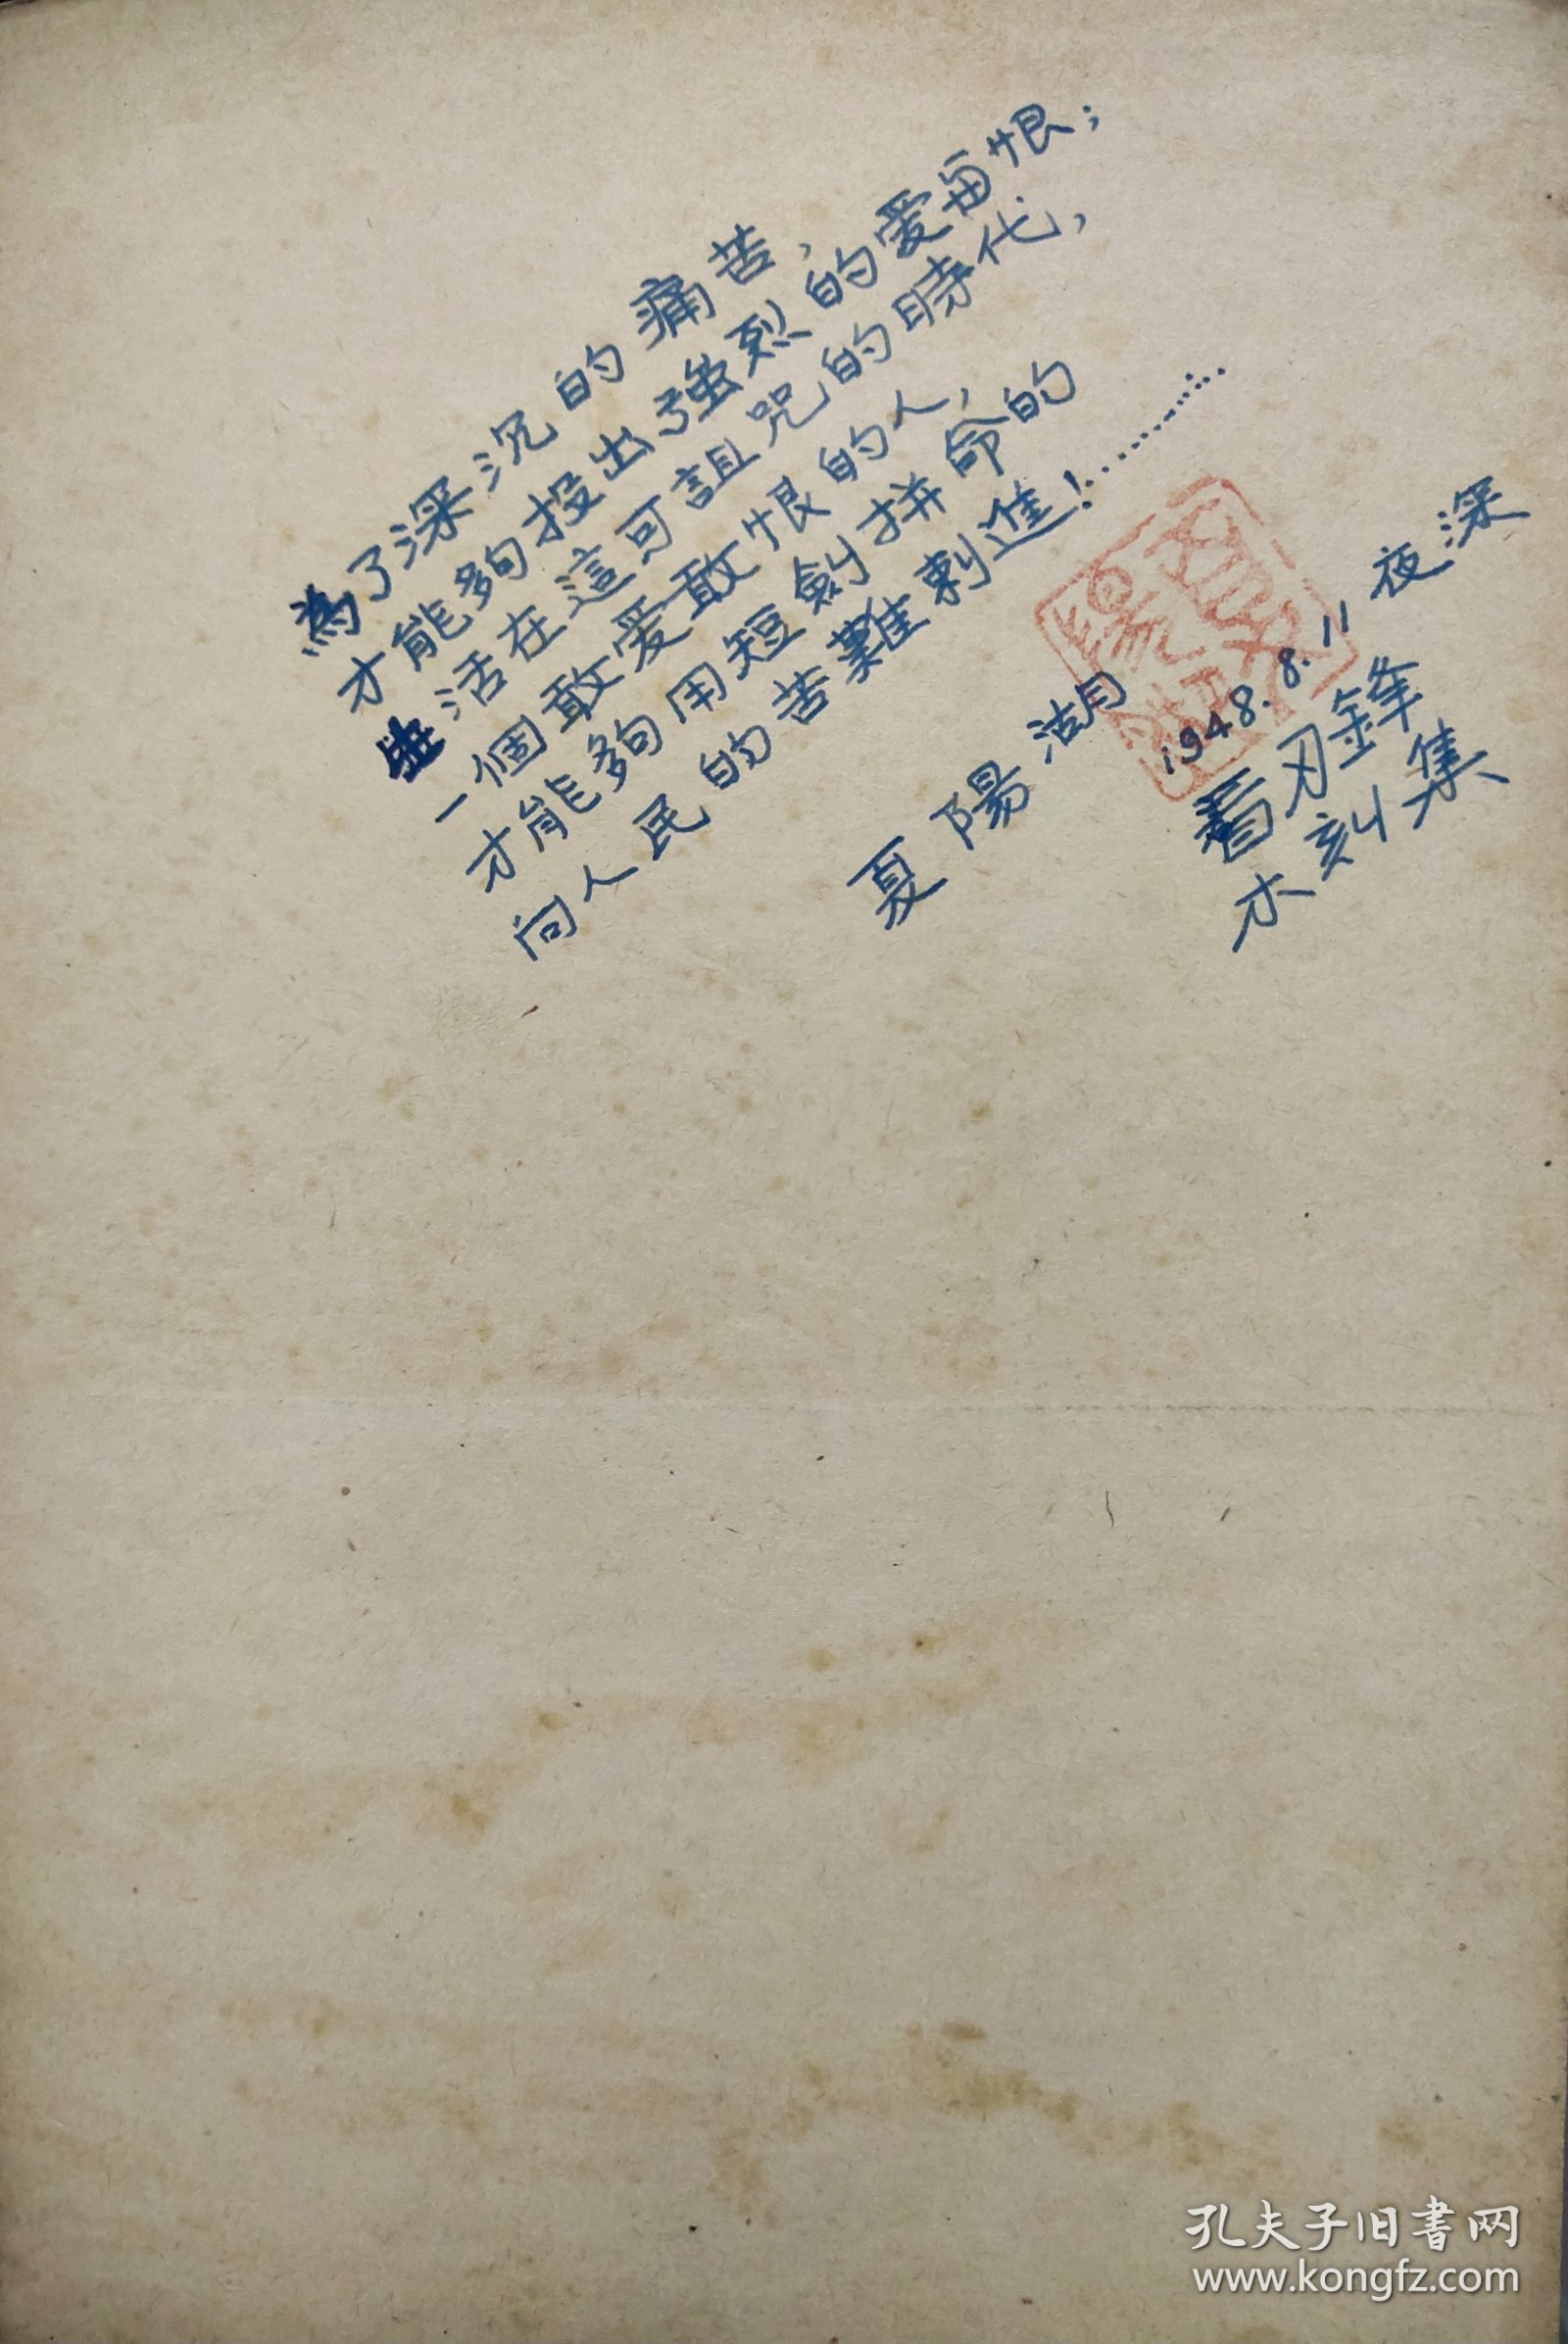 為了深沉的痛苦，
才能夠投出強烈的爱与恨；
生活在這可詛咒的時代，
一個敢爱敢恨的人，
才能夠用短劍拼命的
向人民的苦難刺進！…………
夏陽湖
1948.8.11夜深
看刃鋒
木刻集
孔夫子旧書网
www.kongfz.com